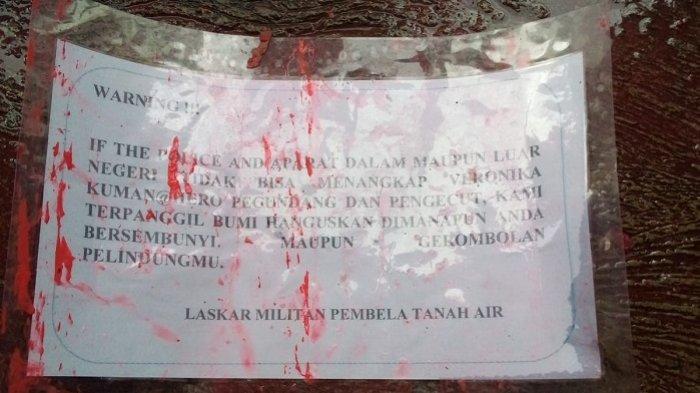 WARNING !!!
IF THE POLICE AND APARAT DALAM MAUPUN LUAR
NEGERI TIDAK BISA MENANGKAP VERONIKA
KUMAN@HERO PEGUNDANG DAN PENGECUT, KAMI
TERPANGGIL BUMI HANGUSKAN DIMANAPUN ANDA
BERSEMBUNYI. MAUPUN GEROMBOLAN
PELINDUNGMU.
LASKAR MILITAN PEMBELA TANAH AIR